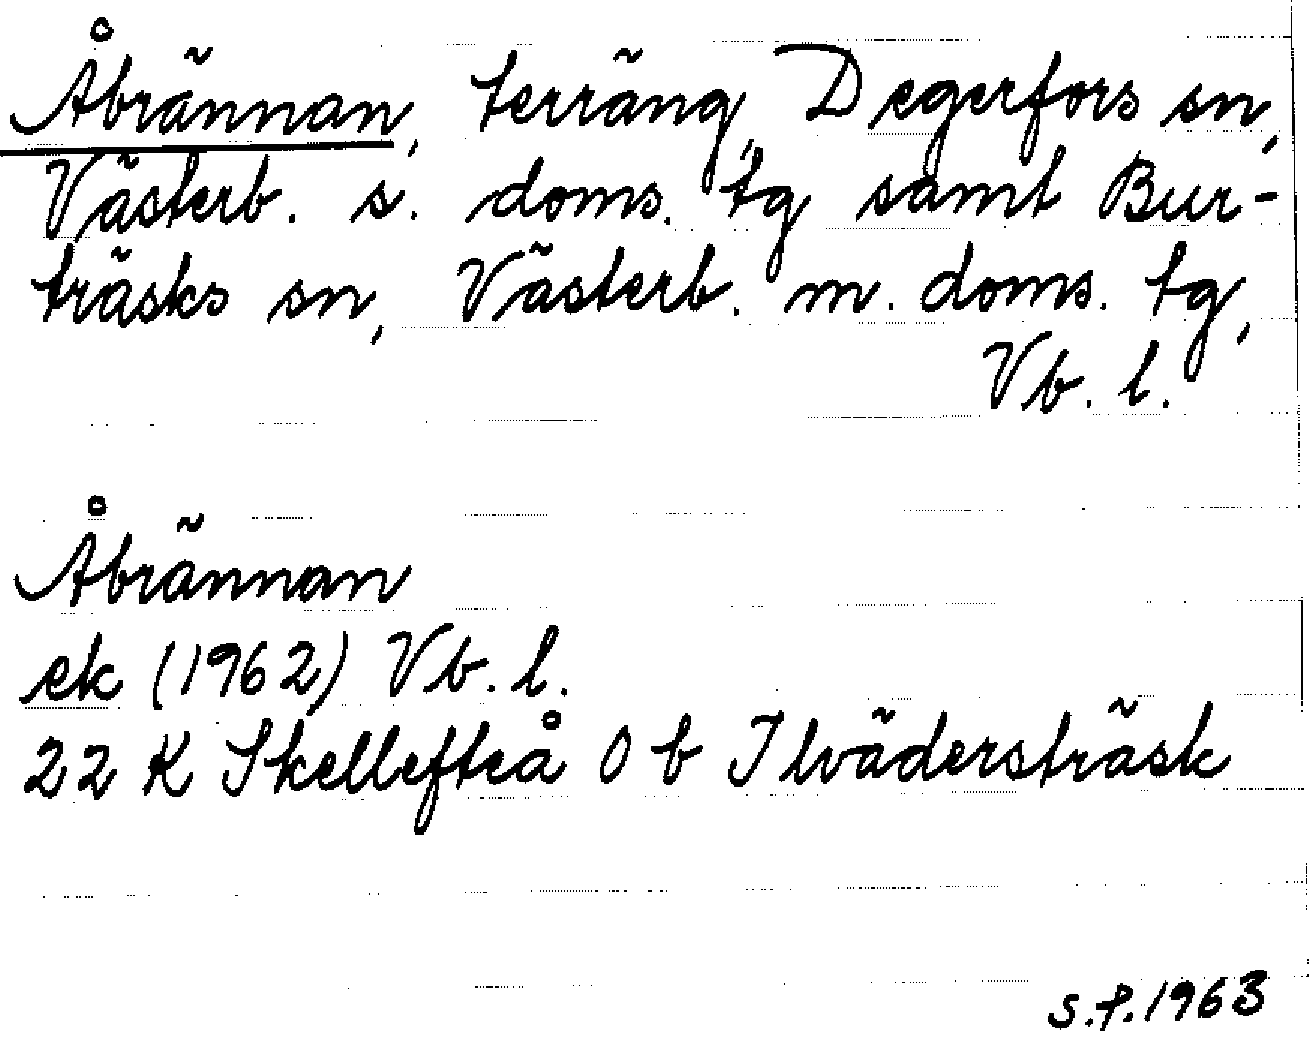 Åbrännan, terräng, Degerfors sn,
Västerb. s. doms. tg samt Bur-
träsks sn, Västerb. m. doms. tg,
Vb. l.
Åbrännan
ek (1962) Vb. l.
22 K Skellefteå 0 b Ilvädersträsk
S.P. 1963